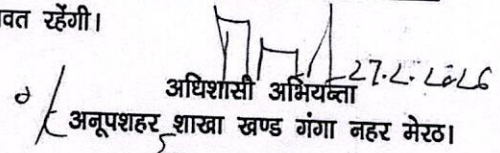 वत रहेंगी।
27.2.2026
अधिशासी अभियन्ता
अनूपशहर शाखा खण्ड गंगा नहर मेरठ।